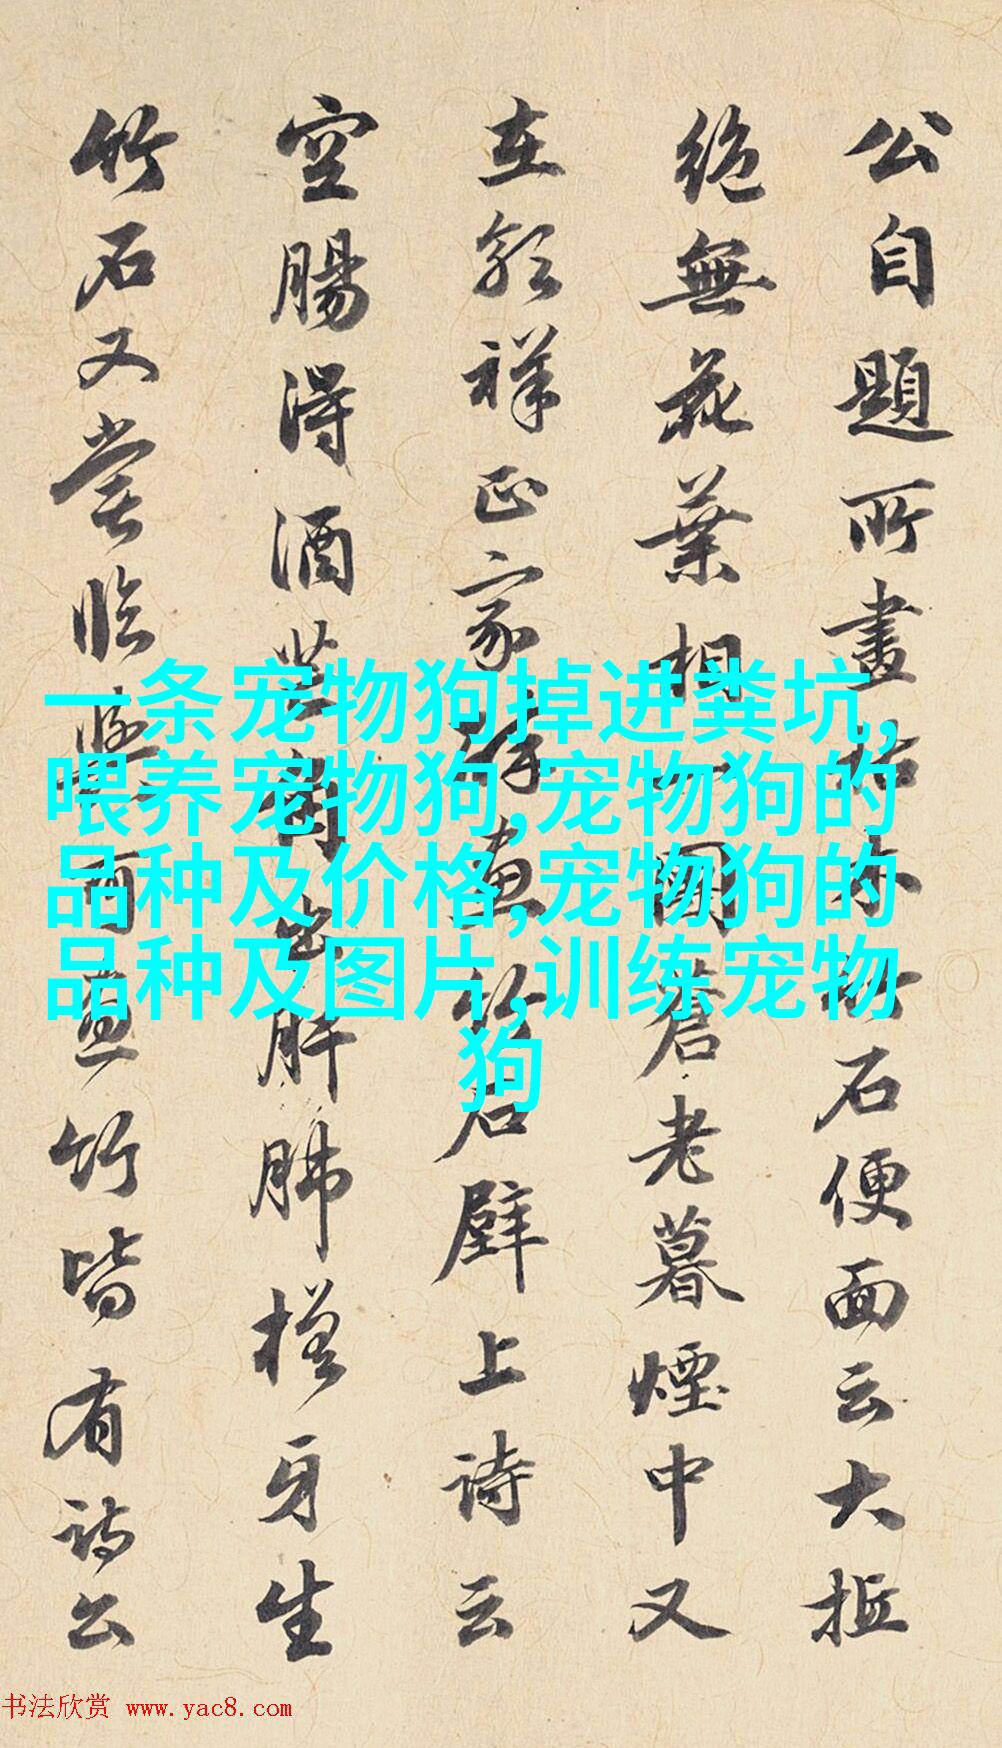 公自題所畫木竹石便面云大抵
絶無花葉相一團蒼老暮煙中又
在郭祥正家醉畫竹石壁上詩云
空腸得酒芒角出肝肺槎牙生
竹石又嘗臨與可畫竹皆有詩公
一条宠物狗掉进粪坑,
喂养宠物狗,宠物狗的
品种及价格,宠物狗的
品种及图片,训练宠物
狗
书法欣赏 www.yac8.com